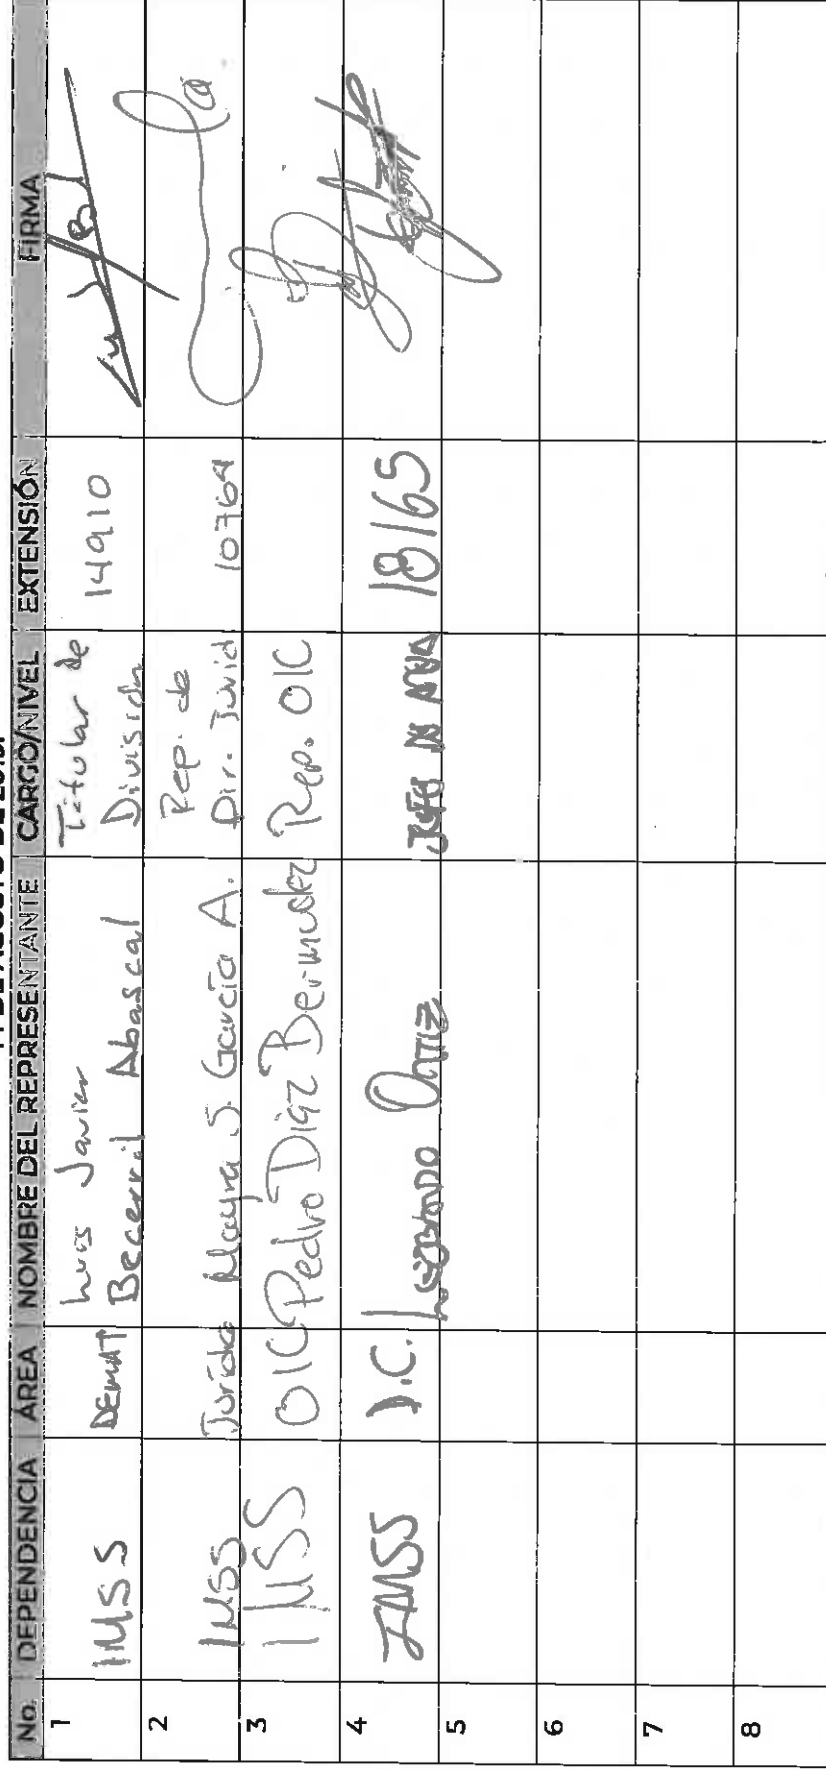 No. DEPENDENCIA ÁREA NOMBRE DEL REPRESENTANTE CARGO/NIVEL EXTENSIÓN FIRMA
1 IMSS DEMAT Luis Javier Becerril Abascal Titular de División 14910
2 IMSS Jurídico Mayra S. García A. Rep. de Dir. Juríd 10764
3 IMSS OIC Pedro Díaz Bermudez Rep. OIC
4 IMSS D.C. Leobardo Ortiz Jefe de Area 18165
5
6
7
8